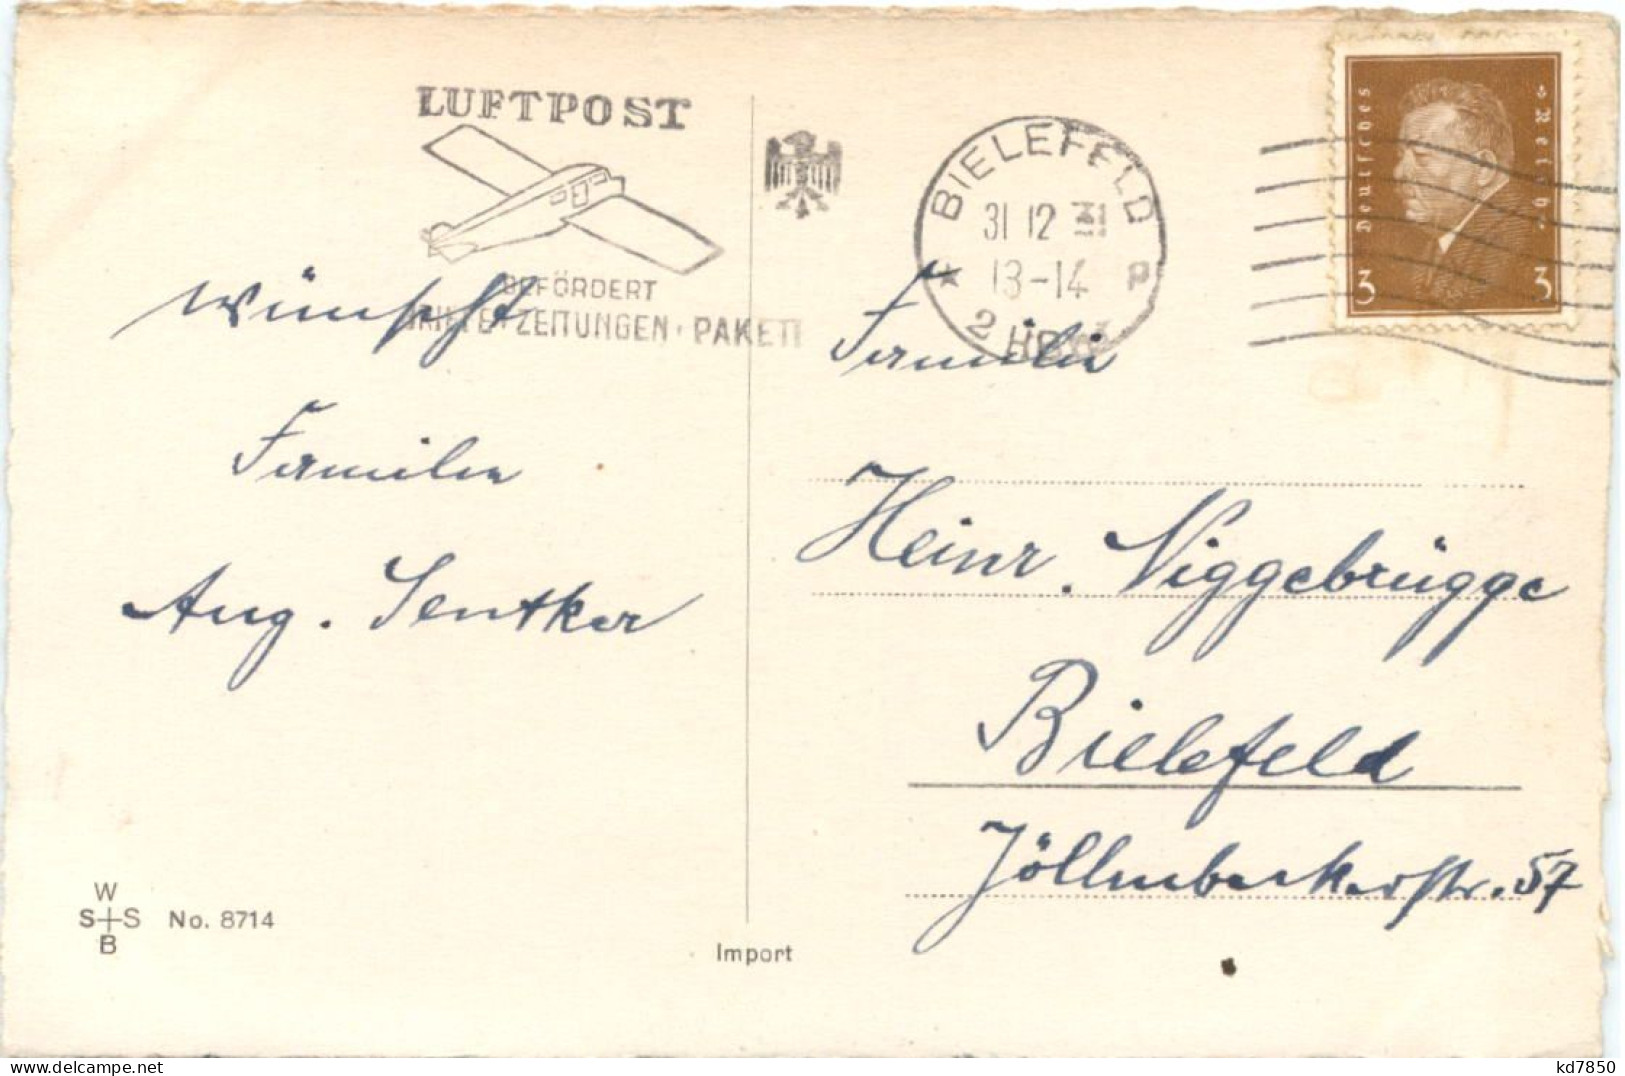 LUFTPOST
BEFÖRDERT
ZEITUNGEN · PAKETE
BIELEFELD
31 12 31
13-14
P
2
Deutsches Reich
3 3
wünscht
Familie
Aug. Sentker
Familie
Heinr. Niggebrügge
Bielefeld
Jöllenbeckerstr. 57
W
S S
B
No. 8714
Import
kd7850